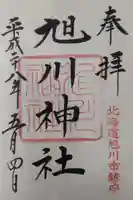 奉拝
北海道旭川市鎮座
旭川神社
平成二十八年五月四日